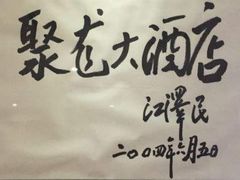 聚龙大酒店
江澤民
二〇〇四年六月五日